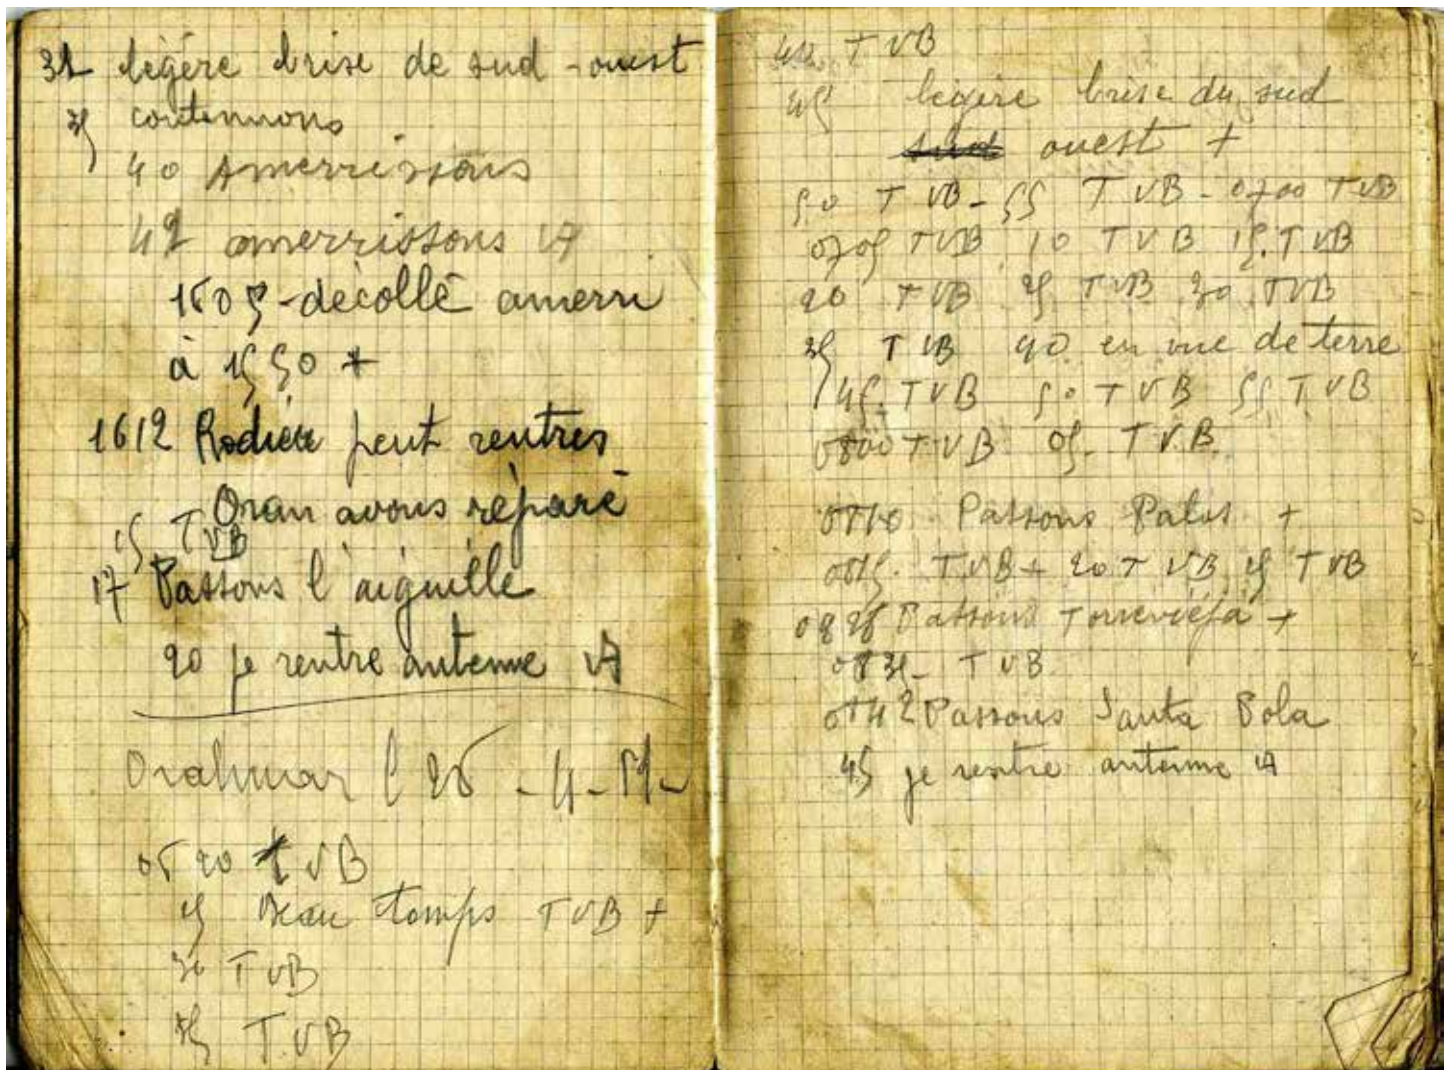 31 légère brise de sud-ouest
35 continuons
40 Amerrissons
42 amerrissons VA
1605 - décollé amerri
à 1550 +
1612 Rodier peut rentres
Oran avons réparé
15 TVB
17 Passons l'aiguille
20 je rentre antenne VA
l 26-4-
20 TVB
25 Beau temps TVB +
30 TVB
35 TVB
40 TVB
45 légère brise du sud
sud ouest +
50 TVB - 55 TVB - 0700 TVB
0705 TVB 10 TVB 15. TVB
20 TVB 25 TVB 30 TVB
35 TVB 40 en vue de terre
45. TVB 50 TVB 55 TVB
0800 TVB 05. T.V.B.
0810. Passons Palos +
0815. TVB + 20 TVB 25 TVB
0828 Passons Torrevieja +
0835- TVB
0842 Passons Santa Pola
45 je rentre antenne VA